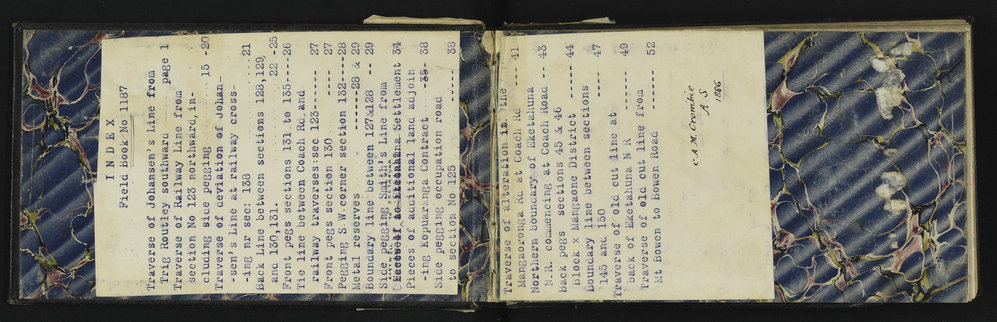 I N D E X
Field Book No 1187
Traverse of Johansen's Line from
Trig Routley southward page 1
Traverse of Railway Line from
section No 123 northward, in-
cluding side pegging 15 -20
Traverse of deviation of Johan-
-sen's Line at railway cross-
-ing nr sec: 138 ------- 21
Back Line between sections 128,129,
and 130,131. 22 -25
Front pegs sections 131 to 135----26
Tie line between Coach Rd.and
railway traverses:sec 123----- 27
Front pegs section 120 ----- 27
Pegging S W.corner section 132---28
Metal reserves -------28 & 29
Boundary line between 127&128 -- 29
Side pegging Smith's Line from
Settlement 34
Pieces of additional land adjoin
-ing Kopuaranga Contract -35- 38
Side pegging occupation road
to section No 125 ----- 38
Traverse of alteration in the
Mangaoronga Rd at Coach Rd --- 41
Northern boundary of Eketahuna
N.R. commencing at Coach Road -- 43
Back pegs sections 45 & 46
Block x Mangaone District ----- 44
Boundary line between sections
145 and 150 ------ 47
Traverse of old cut line at
back of Eketahuna N R ------ 49
Traverse of old cut line from
Mt Bowen to Bowen Road ------ 52
C A M Crombie
A S
1886